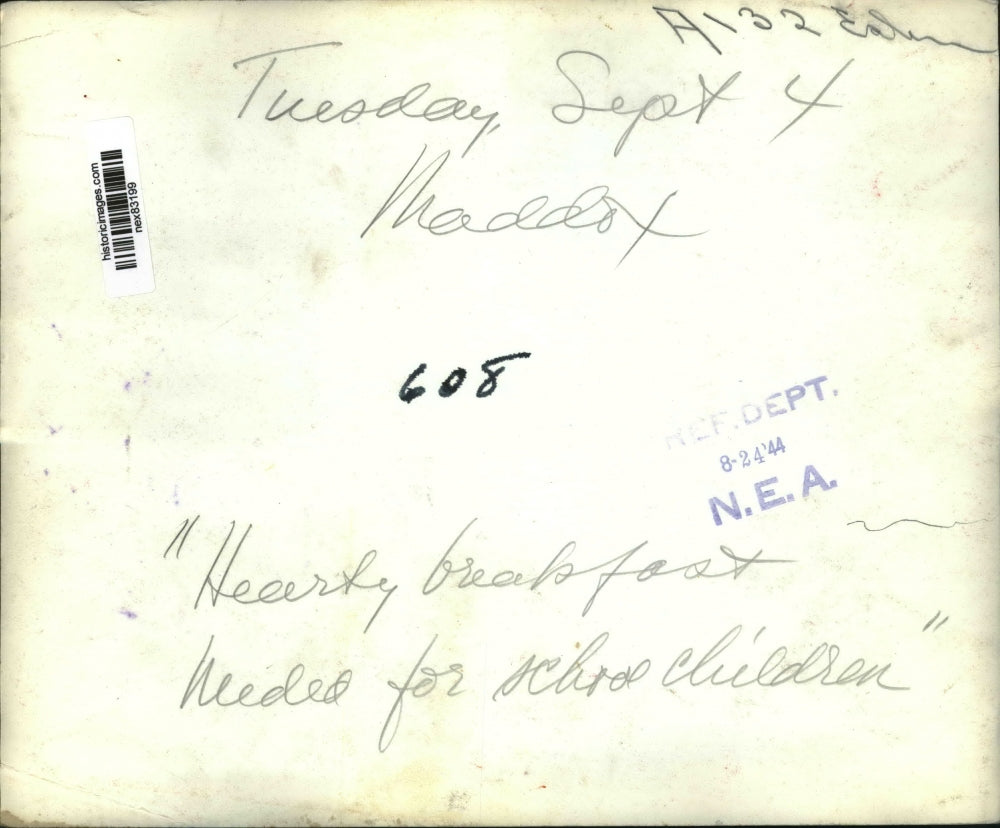 A132
Tuesday, Sept 4
Maddox
historicimages.com
nex83199
608
REF. DEPT.
8-24'44
N.E.A.
"Hearty breakfast
Needed for school children"